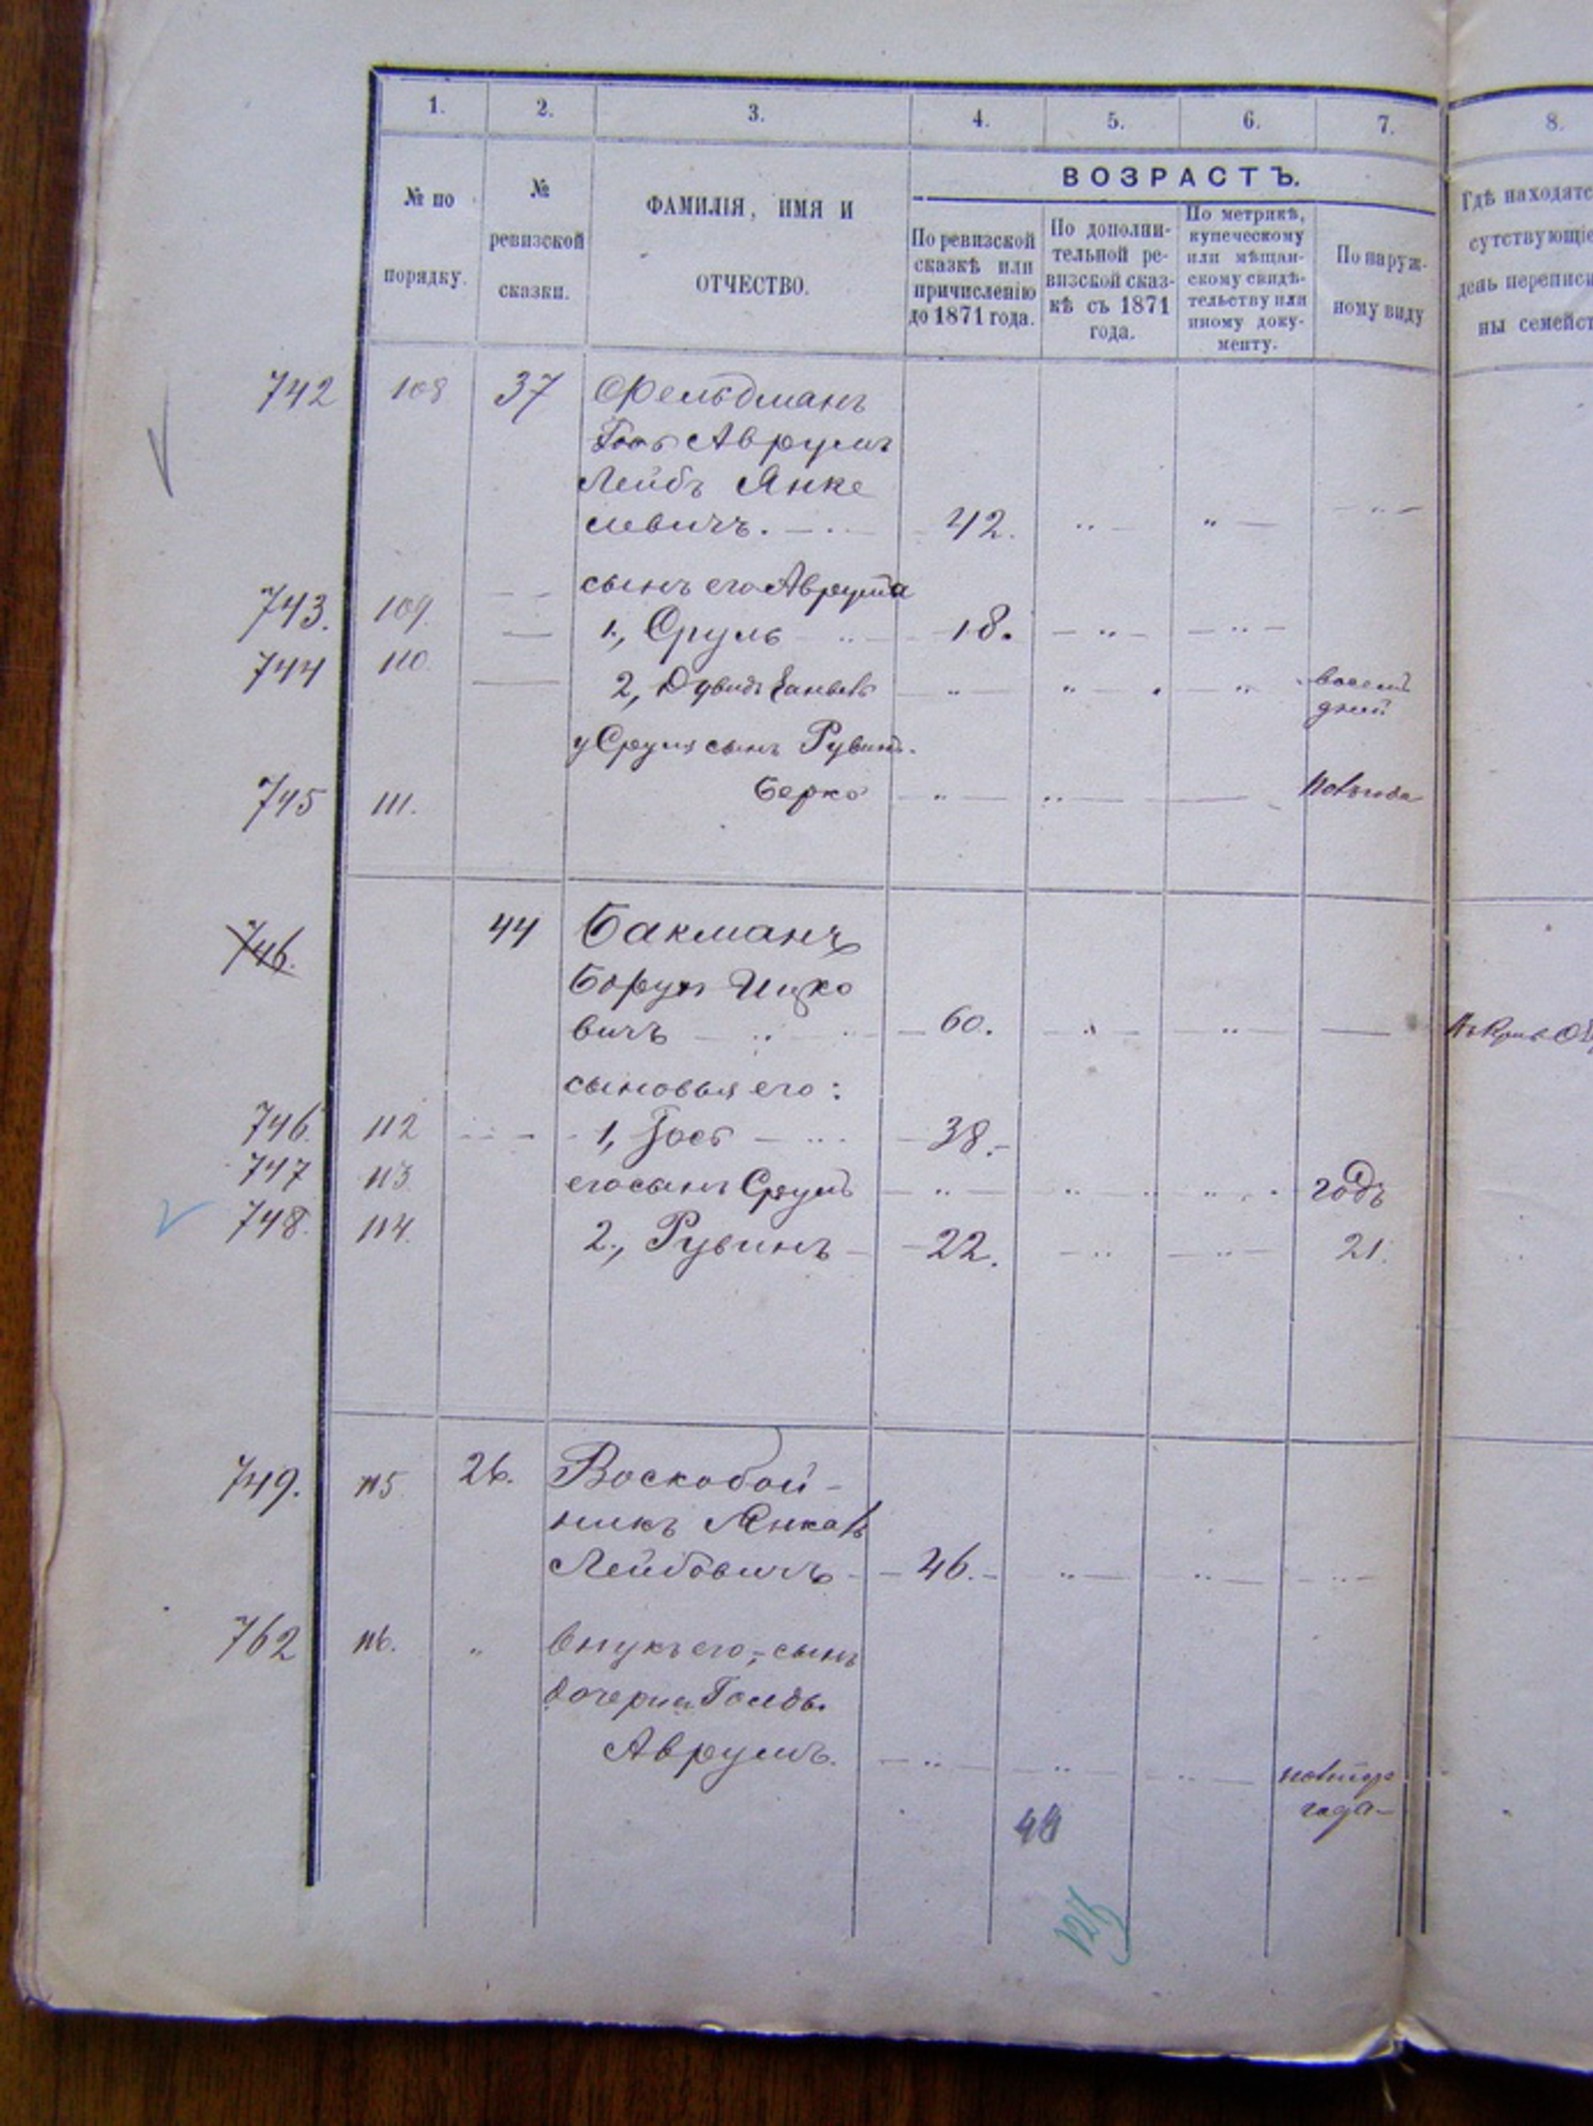 1. 2. 3. 4. 5. 6. 7. 8.
№ по порядку.
№ ревизской сказки.
ФАМИЛІЯ, ИМЯ И ОТЧЕСТВО.
ВОЗРАСТЪ.
По ревизской сказкѣ или причисленію до 1871 года.
По дополни-
тельной ре-
визской сказ-
кѣ съ 1871
года.
По метрикѣ,
купеческому
или мѣщан-
скому свидѣ-
тельству или
иному доку-
менту.
По наруж-
ному виду
Гдѣ находятс
сутствующіе
день переписи
ны семейст
742 108 37 Фельдманъ
Аврумъ
Лейбъ Янке
левичъ. 42.
сынъ его Аврума
743. 109. 1, Сруль 18.
744 110. 2, Дувидъ восемь
дней
у Сруля сынъ Рувинъ
745 111. Берко полгода
746. 44 Бакманъ
Борух Ицко
вичъ 60.
сыновья его:
746. 112 1, Іось 38.
747 113 его сынъ Сруль 1 годъ
748. 114. 2, Рувинъ 22. 21.
749. 115 26. Воскобой-
никъ Янкель
Лейбовичъ 46.
762 116. „ внукъ его, сынъ
дочери Голды
Аврумъ.
года
48